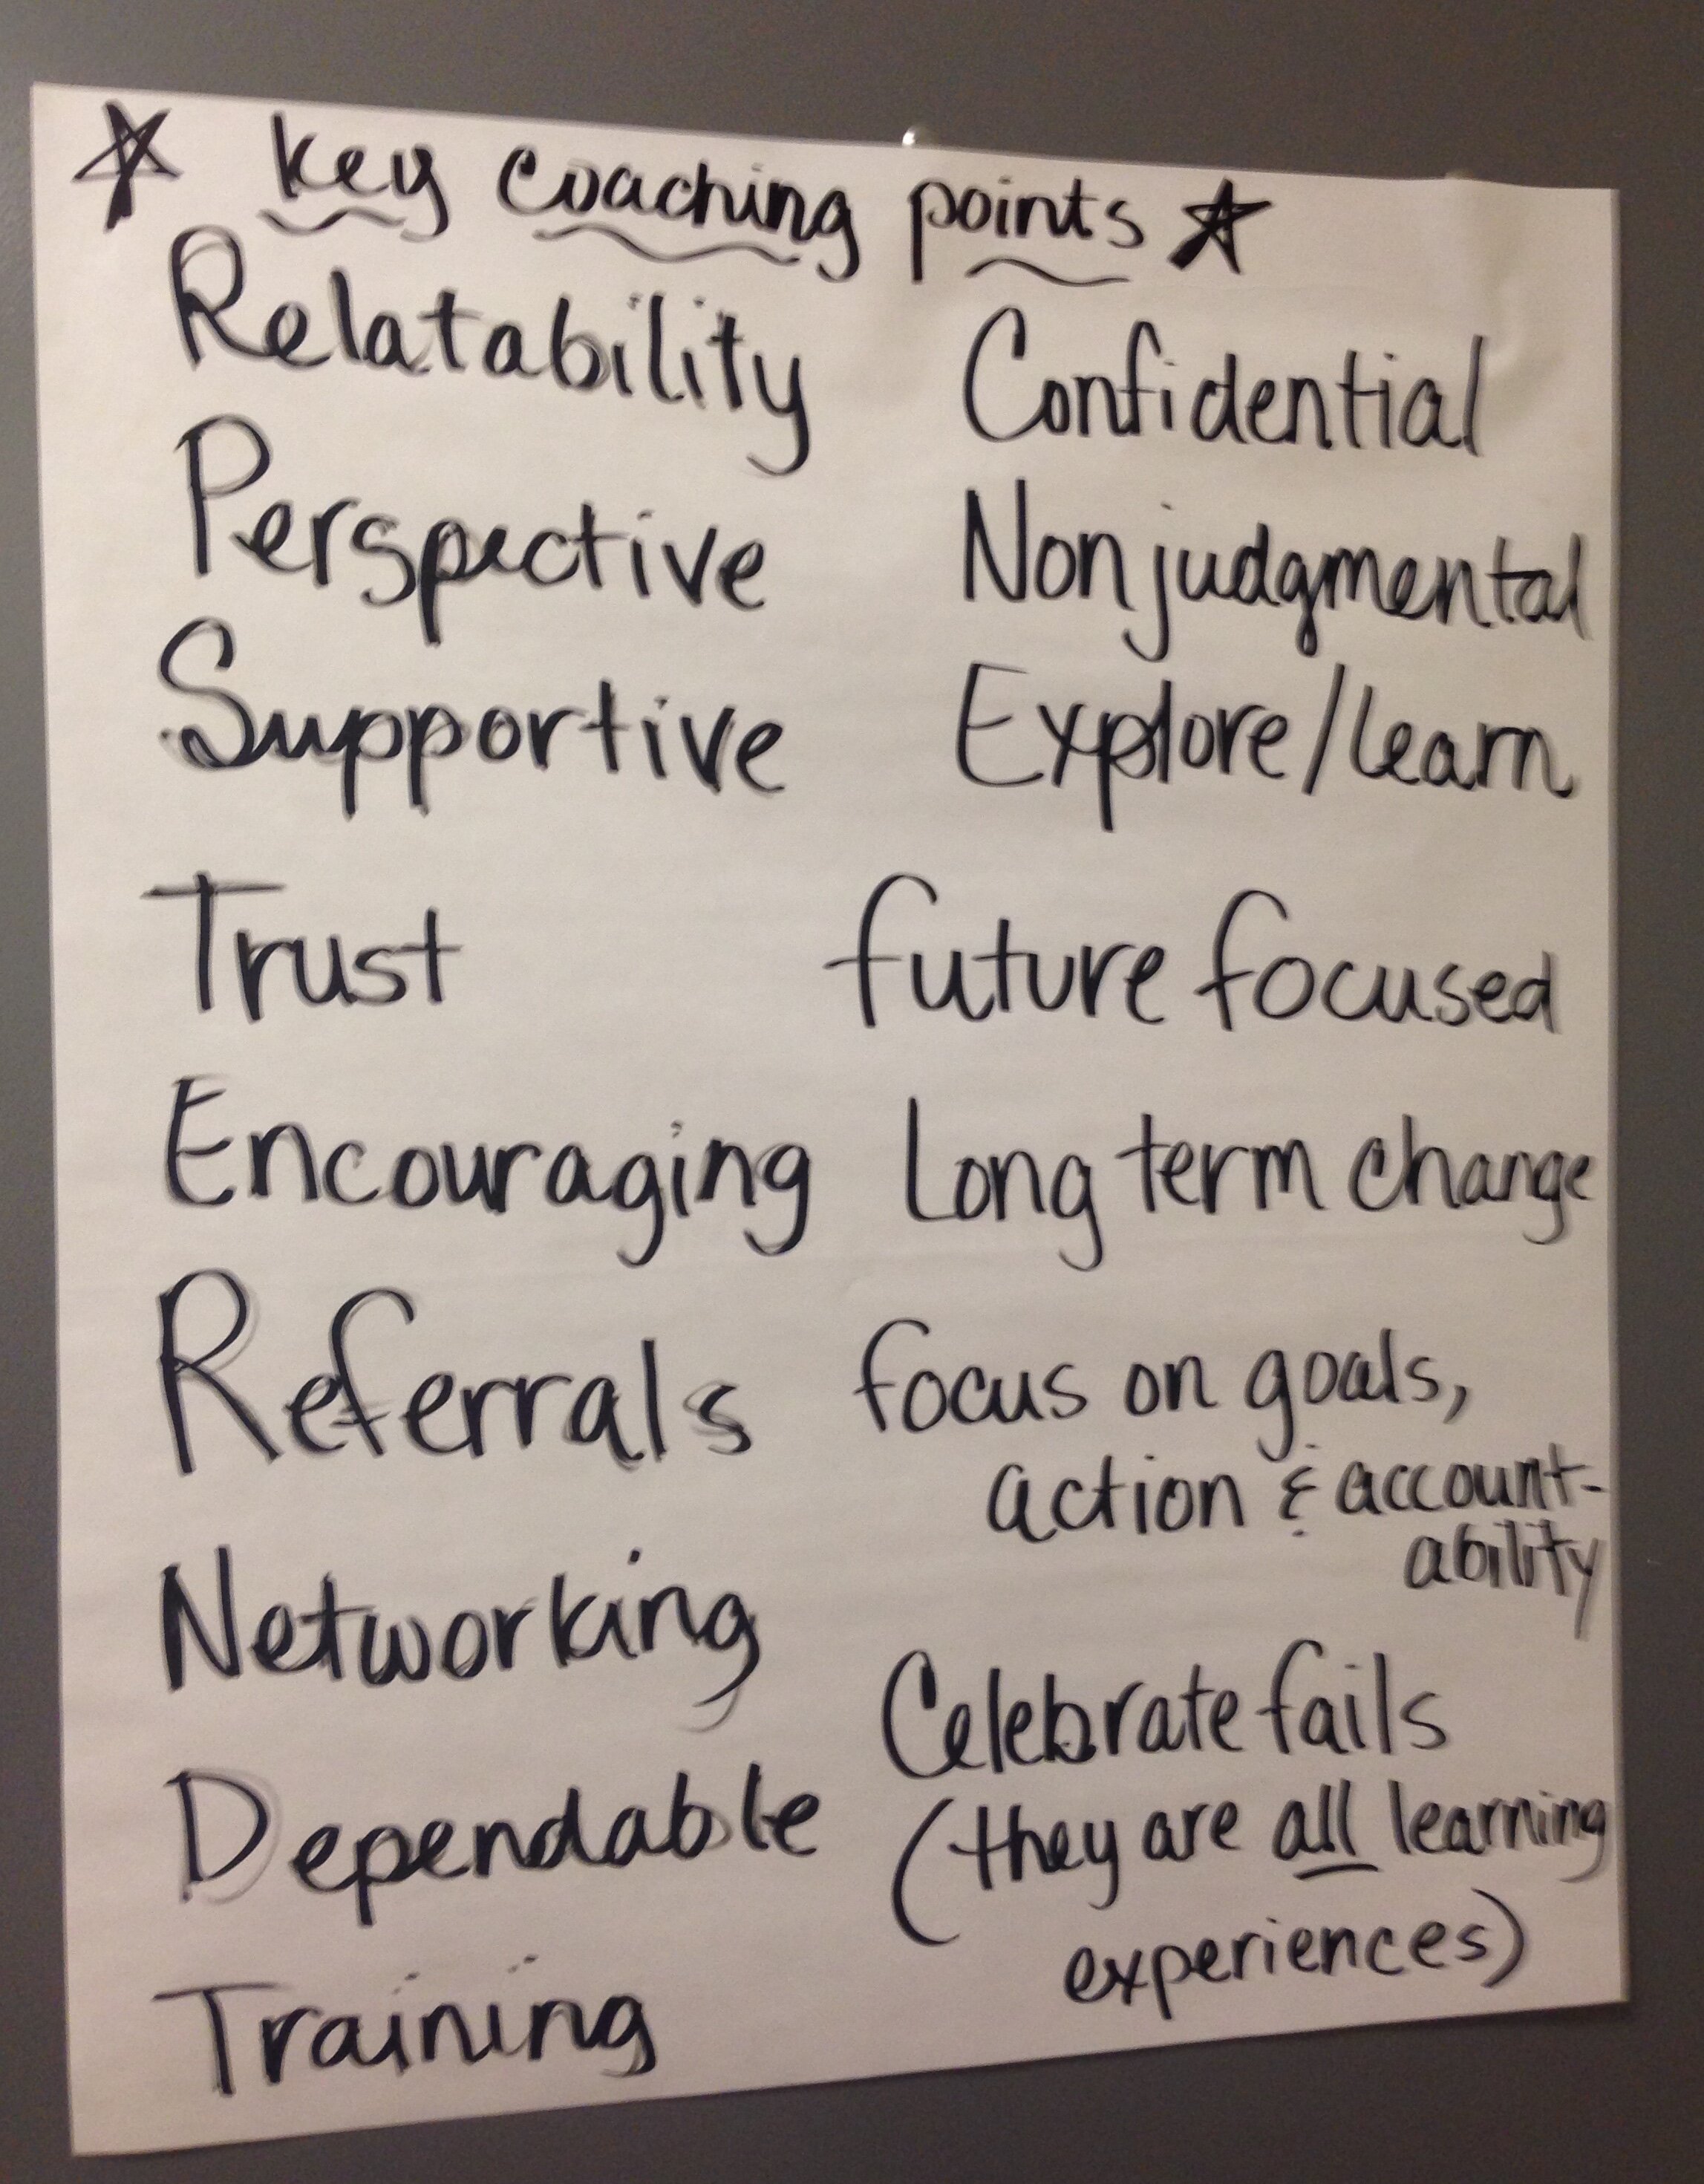 key coaching points
Relatability
Perspective
Supportive
Trust
Encouraging
Referrals
Networking
Dependable
Training
Confidential
Nonjudgmental
Explore/learn
future focused
Long term change
focus on goals,
action & account-
ability
Celebrate fails
(they are all learning
experiences)